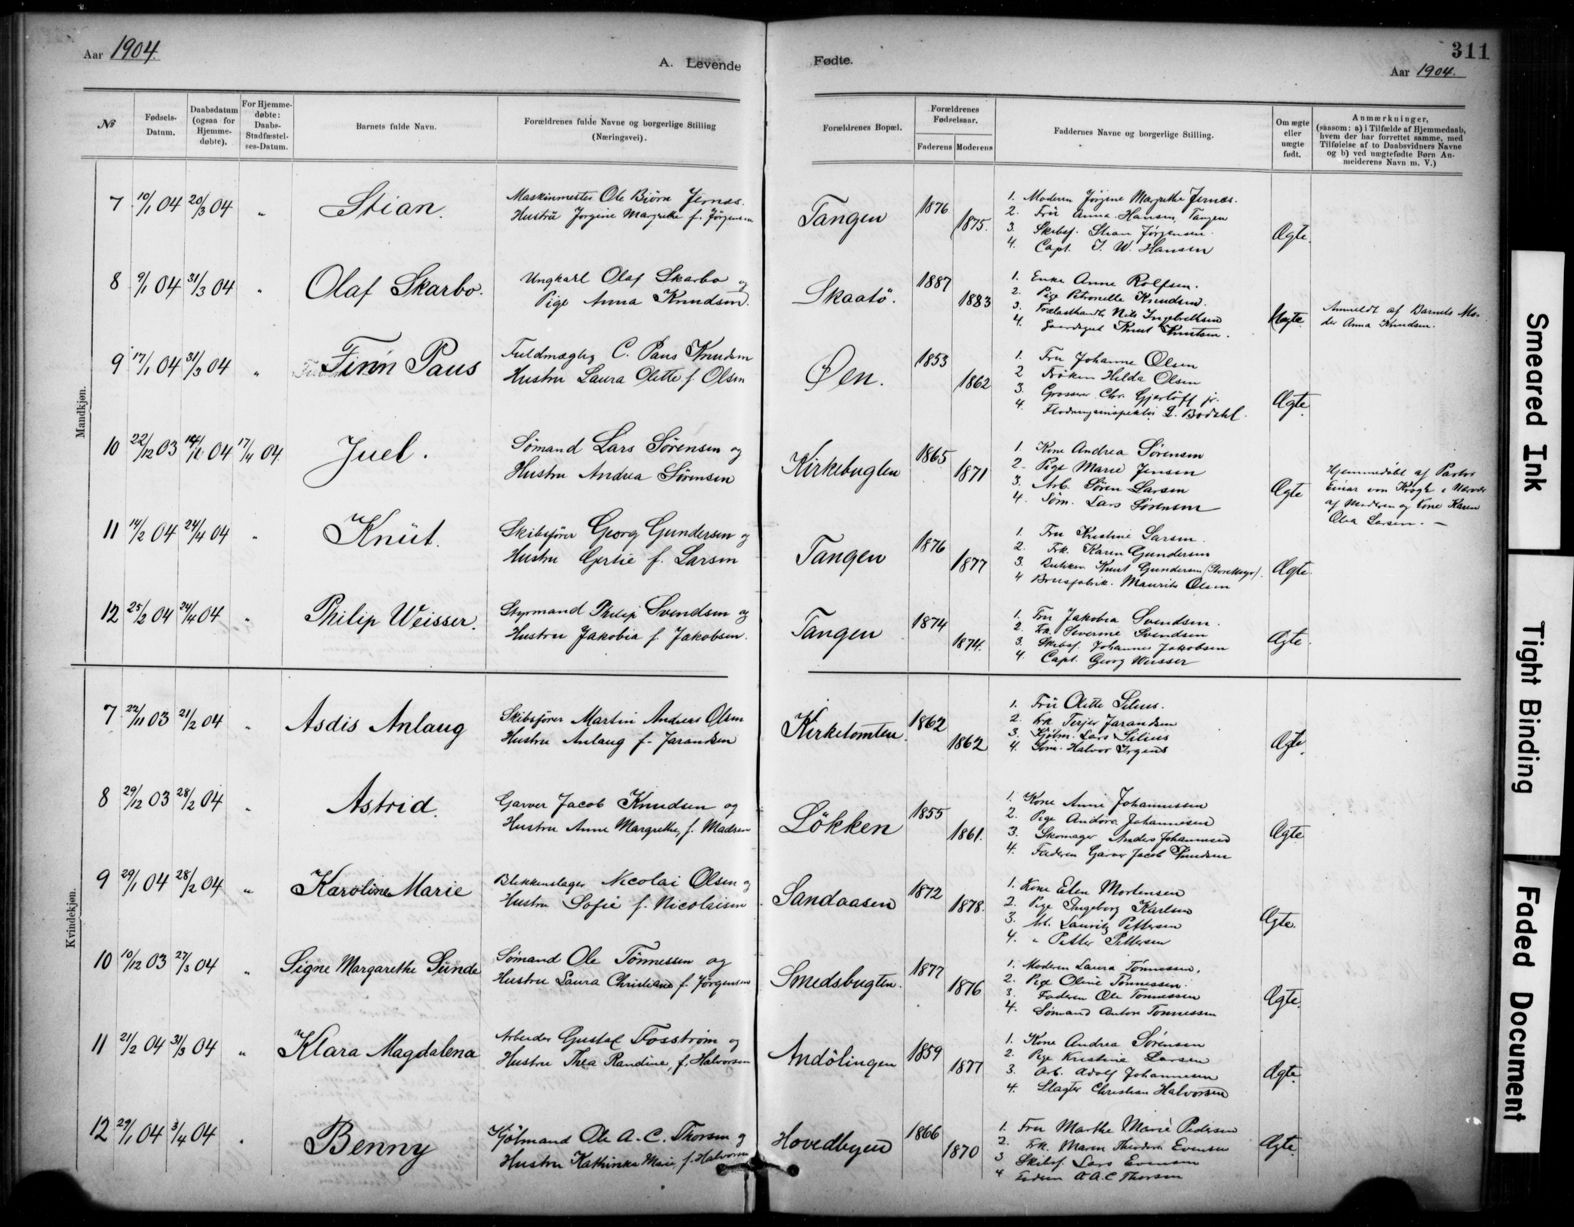 Aar 1904.
A. Levende
Fødte.
311
Aar 1904.
№
Fødsels-Datum.
Daabsdatum (ogsaa for Hjemme-døbte).
For Hjemme-døbte: Daabs-Stadfæstel-ses-Datum.
Barnets fulde Navn.
Forældrenes fulde Navne og borgerlige Stilling (Næringsvei).
Forældrenes Bopæl.
Forældrenes Fødselsaar.
Faderens
Moderens
Faddernes Navne og borgerlige Stilling.
Om ægte eller uægte født.
Anmærkninger,
(saasom: a) i Tilfælde af Hjemmedaab, hvem der har forrettet samme, med Tilføielse af to Daabsvidners Navne og b) ved uægtefødte Børn An-meldelens Navn m. V.)
Mandkjøn.
7 10/1 04 20/3 04 " Stian.
Maskinmester Ole Biörn Jernæs.
Hustru Jorgine Margrethe f. Jörgensen
Tangen 1876 1875.
1. Moderen Jørgine Margrethe Jernæs.
2. Frü Anna Hansen, Tangen
3. Skibsf. Stian Jørgensen.
4. Capt. J. W. Hansen
Ægte.
8 9/1 04 31/3 04 " Olaf Skarbo.
Ungkarl Olaf Skarbo og
Pige Anna Knudsen
Skaatö. 1887 1883
1. Enke Anne Rolfsen.
2. Pige Petronelle Knudsen.
3. Nils Ingebretsen
4. Gaardeget Knut Knutsen.
Uægte
Anmeldt af Barnets Mo-
der Anna Knudsen.
9 17/1 04 31/3 04 " Finn Paus
Fuldmægtig C. Paus Knudsen
Hustru Laura Olette f. Olsen
Øen. 1853 1862
1. Fru Johanne Olsen
2. Frøken Hilda Olsen
3. Grosserer Chr. Gjerløff jr.
4. L. Bodahl.
Ægte
10 22/12 03 04 17/4 04 Juel.
Sømand Lars Sørensen og
Hustru Andrea Sørensen
Kirkebugten 1865 1871
1. Kone Andrea Sørensen
2. Pige Marie Jensen
3. Arb. Søren Larsen
4. Søm. Lars Sørensen
Ægte
Hjemmedøbt af Pastor
Einar von Krogh i Nærvær
af Moderen og Kone Karen
Olea Larsen. —
11 14/2 04 24/4 04 " Knüt.
Skibsfører Georg Gundersen og
Hustru Gertie f. Larsen
Tangen 1876 1877
1. Fru Kristine Larsen.
2. Frk. Karen Gundersen
3. Knut Gundersen
4 Brusfabrik. Maurits Olsen
Ægte.
12 25/2 04 24/4 04 " Philip Weisser.
Styrmand Philip Svendsen og
Hustru Jakobia f Jakobsen.
Tangen 1874 1874.
1. Fru Jakobia Svendsen.
2. Frk. Severine Svendsen
3. Skibsf. Johannes Jakobsen
4. Capt. Georg Weisser
Ægte.
Kvindekjøn.
7 22/11 03 21/2 04 " Asdis Anlaug
Skibsfører Martin Andreas Olsen
Hustru Anlaug f. Jarandsen
Kirketomten 1862 1862
1. Frü Olette Silius.
2. Frk. Terjer Jarandsen
3. Kjøbm. Lars Silius
4. Søm. Halvor Irgens
Ægte.
8 29/12 03 28/2 04 " Astrid.
Garver Jacob Knudsen og
Hustru Anne Margrethe, f. Madsen
Løkken 1855 1861.
1. Kone Anne Johannessen
2. Pige Andora Johannesen
3. Skomager Anders Johannesen
4. Faderen Garver Jacob Knudsen
Ægte
9 29/1 04 28/2 04 " Karoline Marie
Blikkenslager Nicolai Olsen og
Hustru Sofie f. Nicolaisen
Sandaasen 1872 1878.
1. Kone Elen Mortensen
2. Pige Ingeborg Karlsen
3. Arb. Lauritz Pettersen
4. " Petter Pettersen
Ægte.
10 10/12 03 27/3 04 " Signe Margarethe Sünde
Sømand Ole Tønnessen og
Hustru Laura Christiane f. Jørgensen
Smedsbugten. 1877 1876
1. Moderen Laura Tønnessen,
2. Pige Oline Tønnessen
3. Faderen Ole Tonnessen
4. Sømand Anton Tonnessen
Ægte.
11 21/2 04 31/3 04 " Klara Magdalena
Arbeider Gustaf Fosström og
Hustru Thea Randine, f. Halvorsen
Andölingen 1859 1877
1. Kone Andrea Sørensen
2. Pige Kristine Larsen
3. Arb. Adolf Johannesen
4. Slagter Christian Halvorsen
Ægte.
12 29/1 04 3/4 04 " Benny
Kjølmand Ole A. C. Thorsen og
Hustru Kathinka Marie, f. Halvorsen
Hovedbyen 1866 1870
1. Fru Marthe Marie Pedersen
2. Frk. Maren Theodora Evensen
3 Skibsf. Lars Evensen
4 O.A.C Thorsen
Ægte.
Smeared Ink
Tight Binding
Faded Document